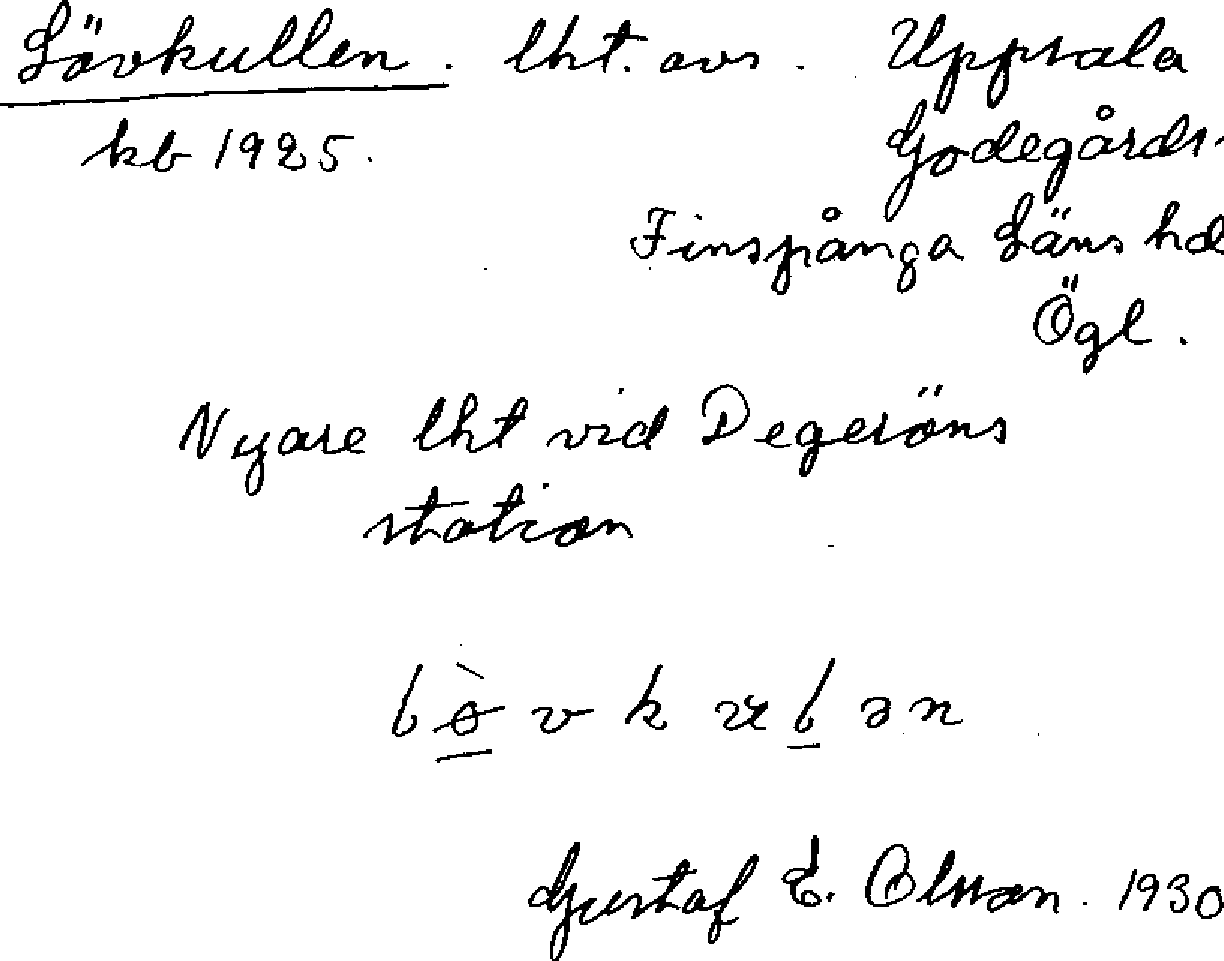 Lövkullen. lht. avs. Uppsala
kb 1925. Godegårds.
Finspånga Läns hd
Ögl.
Nyare lht vid Degeröns
station
Gustaf E. Olsson. 1930